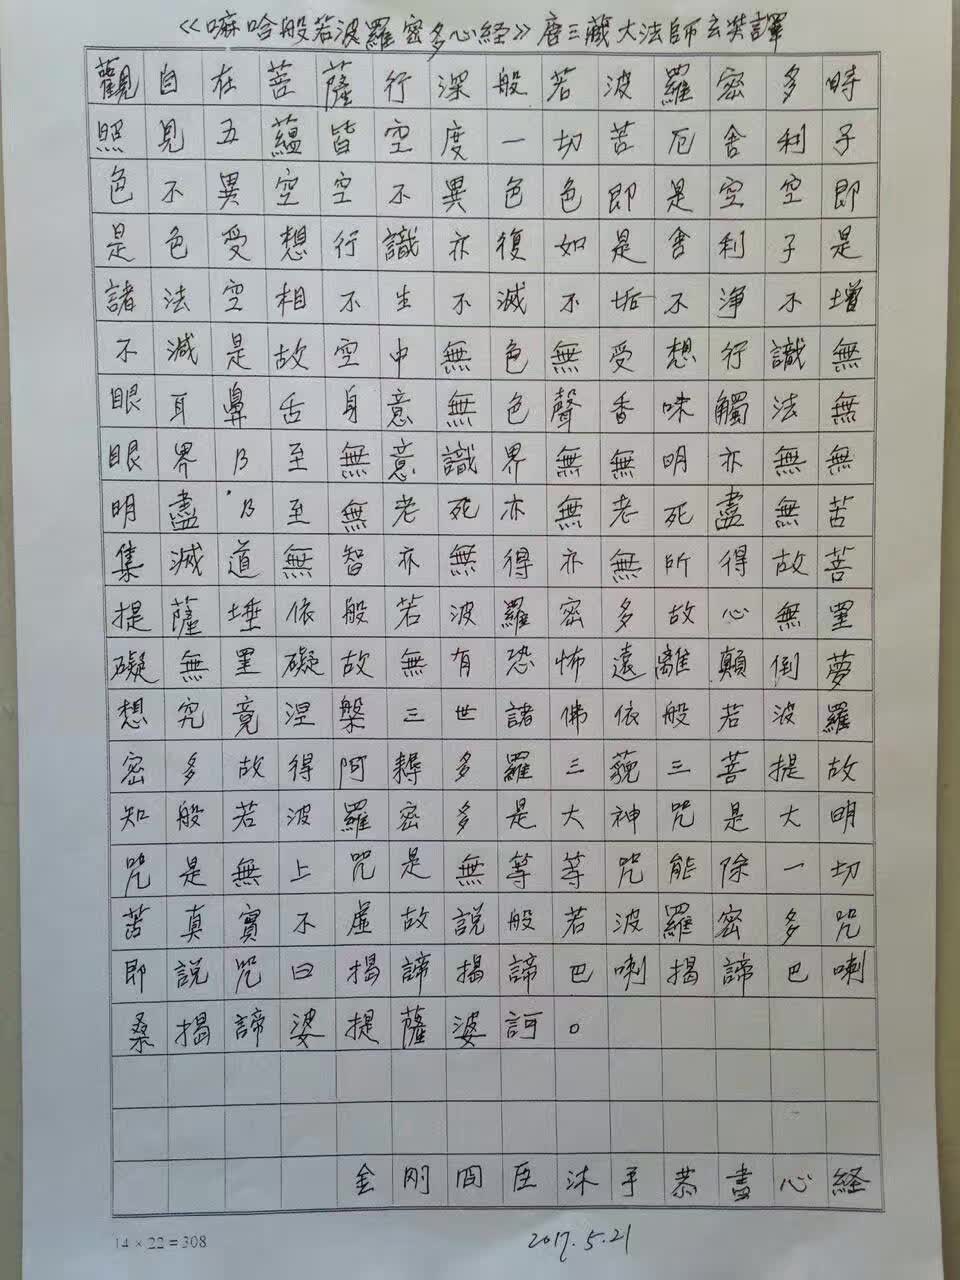 《嘛哈般若波羅密多心経》唐三藏大法師玄奘譯
觀自在菩薩行深般若波羅密多時
照見五蘊皆空度一切苦厄舍利子
色不異空空不異色色即是空空即
是色受想行識亦復如是舍利子是
諸法空相不生不滅不垢不淨不增
不減是故空中無色無受想行識無
眼耳鼻舌身意無色聲香味觸法無
眼界乃至無意識界無無明亦無無
明盡乃至無老死亦無老死盡無苦
集滅道無智亦無得亦無所得故菩
提薩埵依般若波羅密多故心無罣
礙無罣礙故無有恐怖遠離顛倒夢
想究竟涅槃三世諸佛依般若波羅
密多故得阿耨多羅三藐三菩提故
知般若波羅密多是大神咒是大明
咒是無上咒是無等等咒能除一切
苦真實不虛故說般若波羅密多咒
即說咒曰揭諦揭諦巴喇揭諦巴喇
桑揭諦婆提薩婆訶。
金刚 沐手恭書心経
14×22=308
2017.5.21